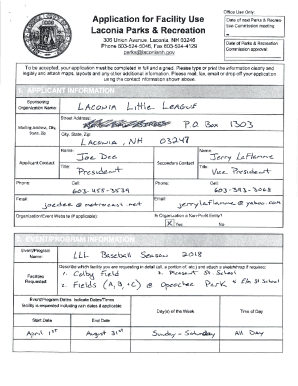 Application for Facility Use
Laconia Parks & Recreation
306 Union Avenue, Laconia, NH 03246
Phone 603-524-5046, Fax 603-524-4129
parks@laconianh.gov
Office Use Only:
Date of next Parks & Recreation Commission meeting
Date of Parks & Recreation Commission approval
To be accepted, your application must be completed in full and signed. Please type or print the information clearly and legibly and attach maps, layouts and any other additional information. Please mail, email or drop off your application using the contact information shown above.
APPLICANT INFORMATION
Sponsoring Organization Name:
Laconia Little League
Mailing Address, City, State, Zip
Street Address:
P.O Box 1303
City, State, Zip:
Laconia, NH 03247
Applicant Contact
Name:
Joe Dee
Title:
President
Secondary Contact
Name:
Jerry LaFlamme
Title:
Vice President
Phone:
Cell:
603-455-3539
Phone:
Cell:
603-393-3068
Email
joedee@metrocast.net
Email
jerrylaflamme@yahoo.com
Organization/Event Website (if applicable):
Is Organization a Non-Profit Entity?
X Yes
No
EVENT/PROGRAM INFORMATION
Event/Program Name
LLL Baseball Season 2018
Facilities Requested
1. Colby Field
3. Pleasant St School
2. Fields (A, B, + C) @ Opechee Park
4 Elm St School
Event/Program Dates: Indicate Dates/Times facility is requested including rain dates if applicable
Start Date
End Date
Day(s) of the Week
Time of Day
April 1st
August 31st
Sunday - Saturday
All Day